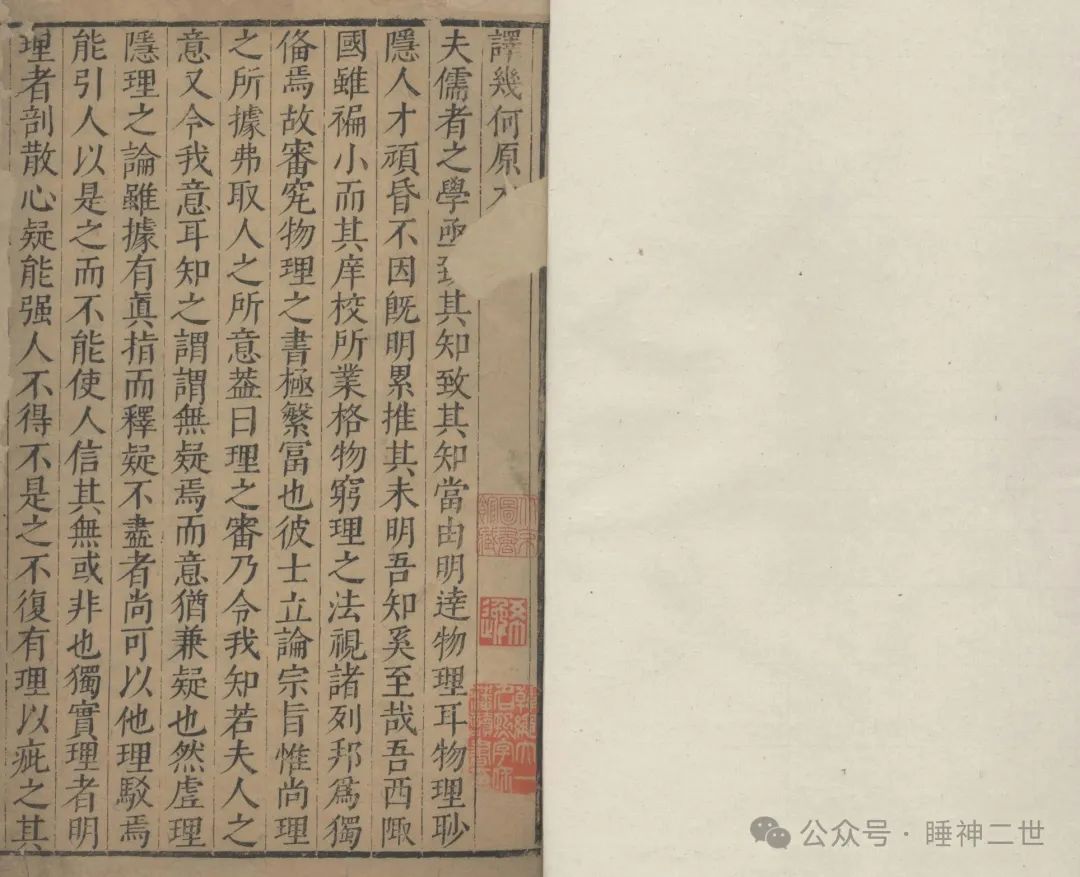 譯幾何原
夫儒者之學亟致其知致其知當由明逹物理耳物理眇
隱人才頑昏不因旣明累推其未明吾知奚至哉吾西陬
國雖褊小而其庠校所業格物窮理之法視諸列邦爲獨
備焉故審究物理之書極繁冨也彼士立論宗旨惟尚理
之所據弗取人之所意葢曰理之審乃令我知若夫人之
意又令我意耳知之謂謂無疑焉而意猶兼疑也然虛理
隱理之論雖據有眞指而釋疑不盡者尚可以他理駁焉
能引人以是之而不能使人信其無或非也獨實理者明
理者剖散心疑能强人不得不是之不復有理以疵之其
公众号·睡神二世